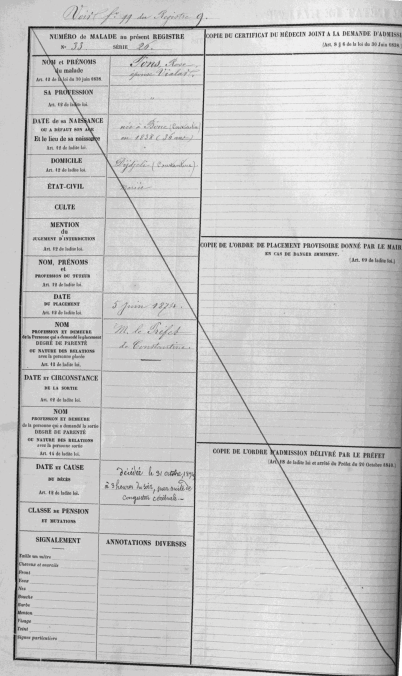 Voir f° 99 du Registre 9.
NUMÉRO de MALADE au présent REGISTRE
N° 33 SÉRIE 26.
NOM et PRÉNOMS
du malade
Art. 12 de la loi du 30 juin 1838.
Pons, Rose
épouse Violat
SA PROFESSION
Art. 12 de ladite loi.
DATE de SA NAISSANCE
OU A DÉFAUT SON AGE
Et le lieu de sa naissance
Art. 12 de ladite loi.
née à Bône (Constantine)
en 1838 (36 ans)
DOMICILE
Art. 12 de ladite loi.
Djidjelli (Constantine)
ÉTAT-CIVIL
Art. 12 de ladite loi.
mariée
CULTE
MENTION
du
JUGEMENT D'INTERDICTION
Art. 12 de ladite loi.
NOM, PRÉNOMS
et
PROFESSION DU TUTEUR
Art. 12 de ladite loi.
DATE
DU PLACEMENT
Art. 12 de ladite loi.
5 Juin 1874
NOM
PROFESSION ET DEMEURE
de la Personne qui a demandé le placement
DEGRÉ DE PARENTÉ
OU NATURE DES RELATIONS
avec la personne placée
Art. 12 de ladite loi.
M. le Préfet
de Constantine
DATE ET CIRCONSTANCE
DE LA SORTIE
Art. 12 de ladite loi.
NOM
PROFESSION ET DEMEURE
de la personne qui a demandé la sortie
DEGRÉ DE PARENTÉ
OU NATURE DES RELATIONS
avec la personne sortie
Art. 14 de ladite loi.
DATE ET CAUSE
DU DÉCÈS
Art. 12 de ladite loi.
Décédée le 31 octobre
à 3 heures du soir, par suite de
congestion cérébrale.
CLASSE DE PENSION
ET MUTATIONS
SIGNALEMENT
ANNOTATIONS DIVERSES
Taille un mètre
Cheveux et sourcils
Front
Yeux
Nez
Bouche
Barbe
Menton
Visage
Teint
Signes particuliers
COPIE DU CERTIFICAT DU MÉDECIN JOINT A LA DEMANDE D'ADMISS
(Art. 8 § 4 de la loi du 30 Juin 1838.)
COPIE DE L'ORDRE DE PLACEMENT PROVISOIRE DONNÉ PAR LE MAIR
EN CAS DE DANGER IMMINENT.
(Art. 19 de ladite loi.)
COPIE DE L'ORDRE D'ADMISSION DÉLIVRÉ PAR LE PRÉFET
(Art. 18 de ladite loi et arrêté du Préfet du 20 Octobre